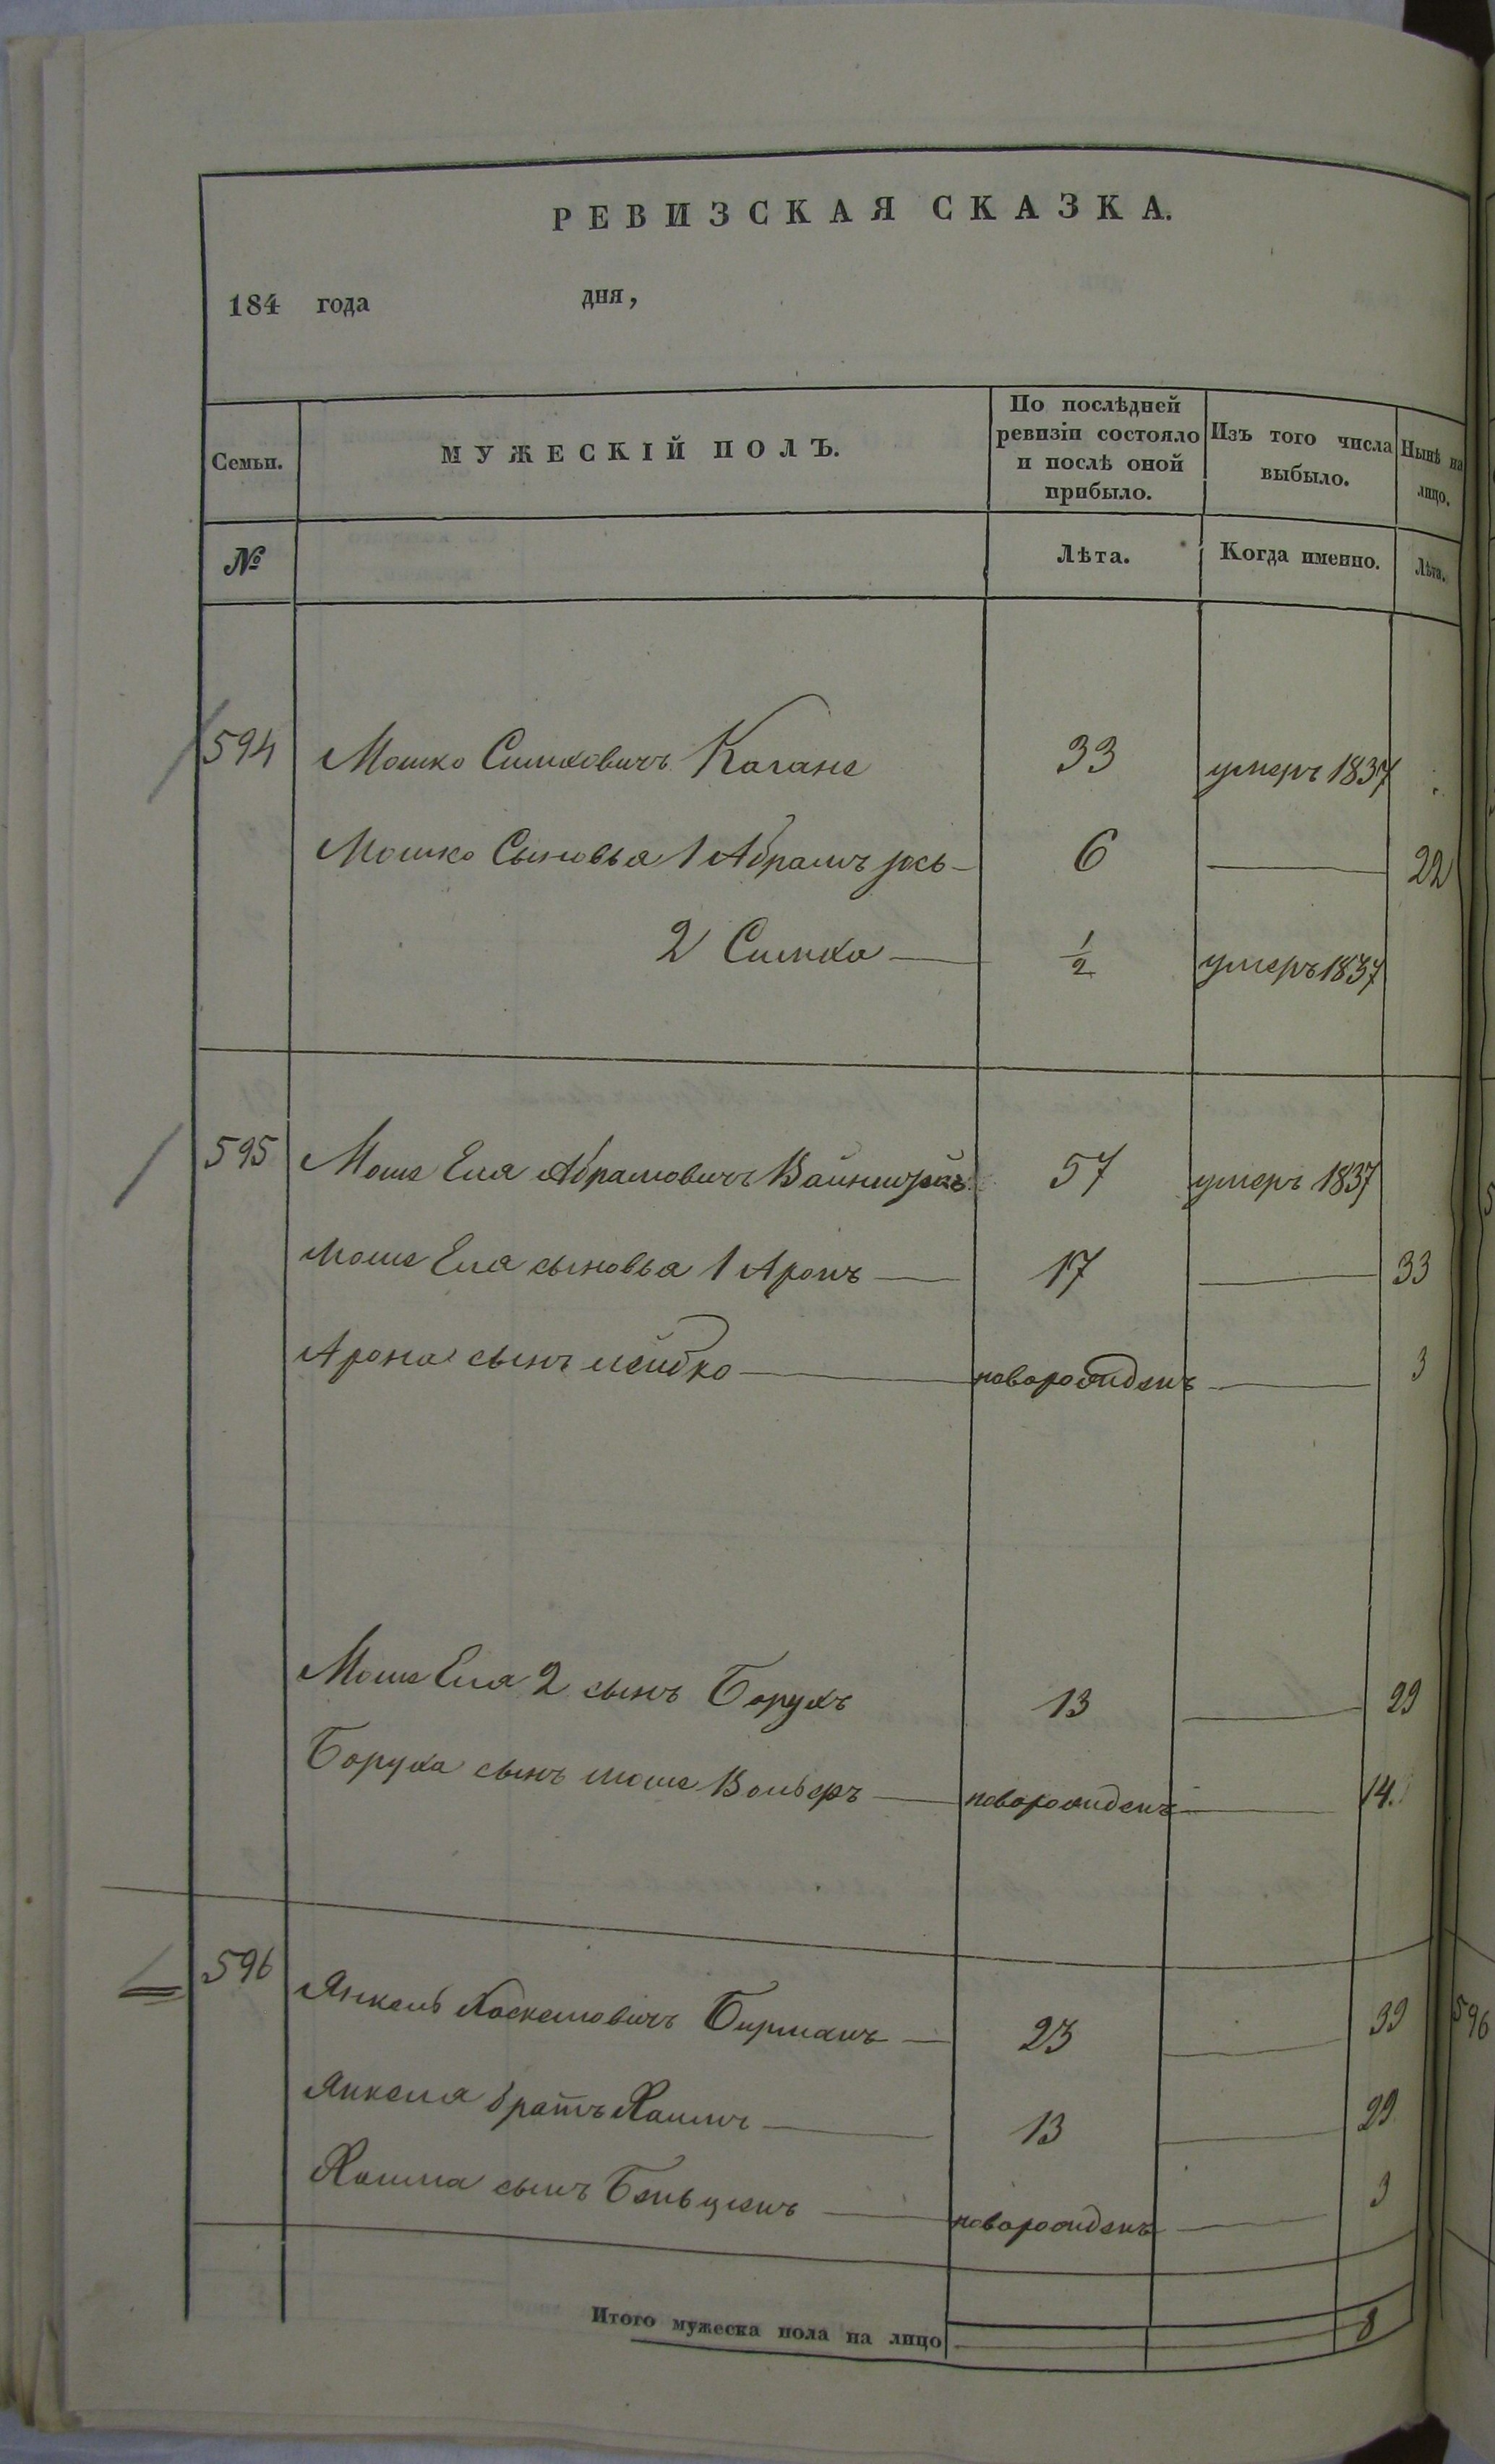 РЕВИЗСКАЯ СКАЗКА.
184 года дня,
Семьи. МУЖЕСКІЙ ПОЛЪ. По послѣдней ревизіи состояло и послѣ оной прибыло. Изъ того числа выбыло. Нынѣ на лицо.
№ Лѣта. Когда именно. Лѣта.
594 Мошко Симховичъ Кагане 33 умеръ 1837
Мошко Сыновья 1 Абрамъ Јось 6 22
2 Симха 1/2 умеръ 1837
595 Моше Еля Абрамовичъ 57 умеръ 1837
Моше Еля сыновья 1 Аронъ 17 33
Арона сынъ Лейбко новорожденъ 3
Моше Еля 2 сынъ Борухъ 13 29
Боруха сынъ Моше Вольфъ новорожденъ 14.
596 Янкель Хаскелювичъ Бирманъ 23 39
596
Янкеля братъ Хаимъ 13 29
Хаима сынъ новорожденъ 3
Итого мужеска пола на лицо 8